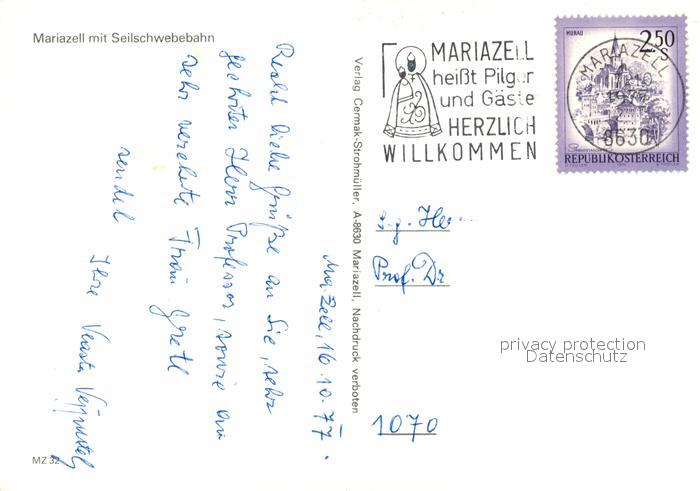 Mariazell mit Seilschwebebahn
Ma. Zell, 16.10.77.
Recht liebe Grüße an Sie, sehr
geehrter Herr Professor, sowie an
sehr verehrte Frau Gretl
sendet
Ihre
MZ 32
Verlag Cermak-Strohmüller, A-8630 Mariazell, Nachdruck verboten
MARIAZELL
heißt Pilger
und Gäste
HERZLICH
WILLKOMMEN
MURAU
2.50
S
REPUBLIK ÖSTERREICH
MARIAZELL
8630
Prof. Dr
1070
privacy protection
Datenschutz